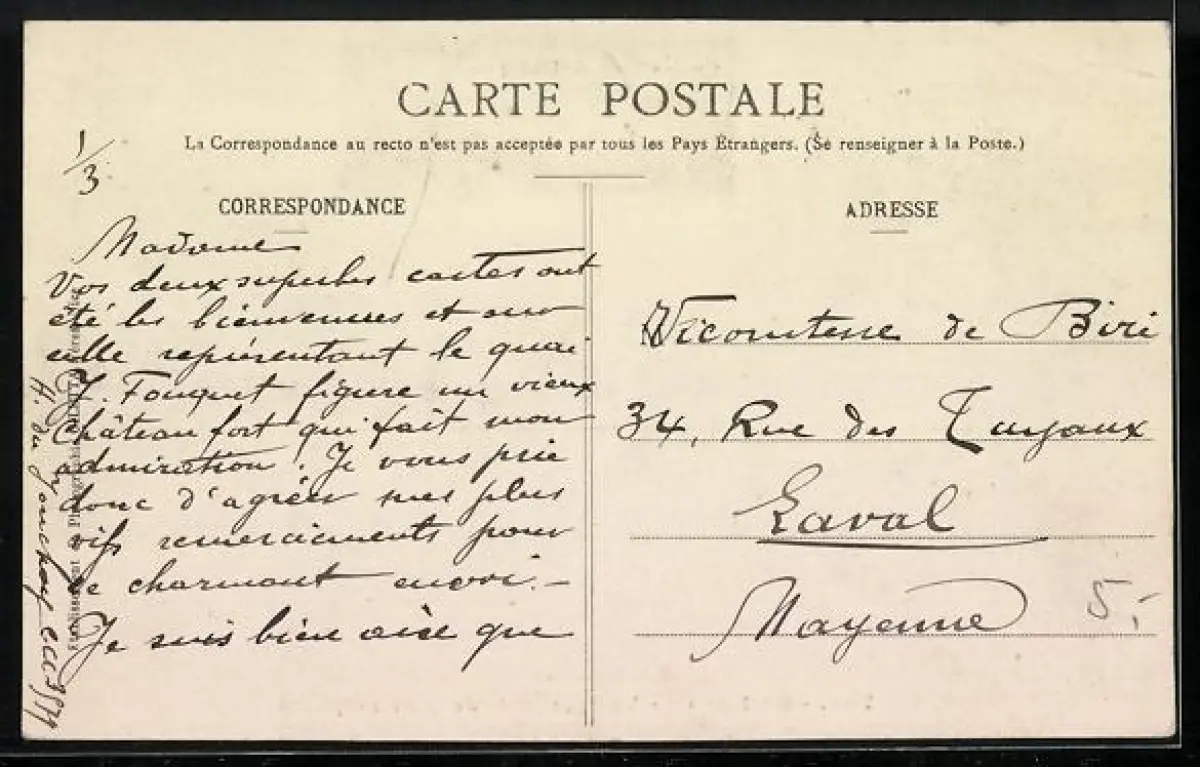 CARTE POSTALE
La Correspondance au recto n'est pas acceptée par tous les Pays Étrangers. (Se renseigner à la Poste.)
1/3
CORRESPONDANCE
Madame
Vos deux superbes cartes ont
été les bienvenues et
celle représentant le quai
J. Fouquet figure un vieux
château fort qui fait mon
admiration. Je vous prie
donc d'agréer mes plus
vifs remerciements pour
ce charmant envoi. —
Je suis bien aise que
ADRESSE
Vicomtesse de Biré
34, Rue des Tuyaux
Laval
Mayenne
5,-